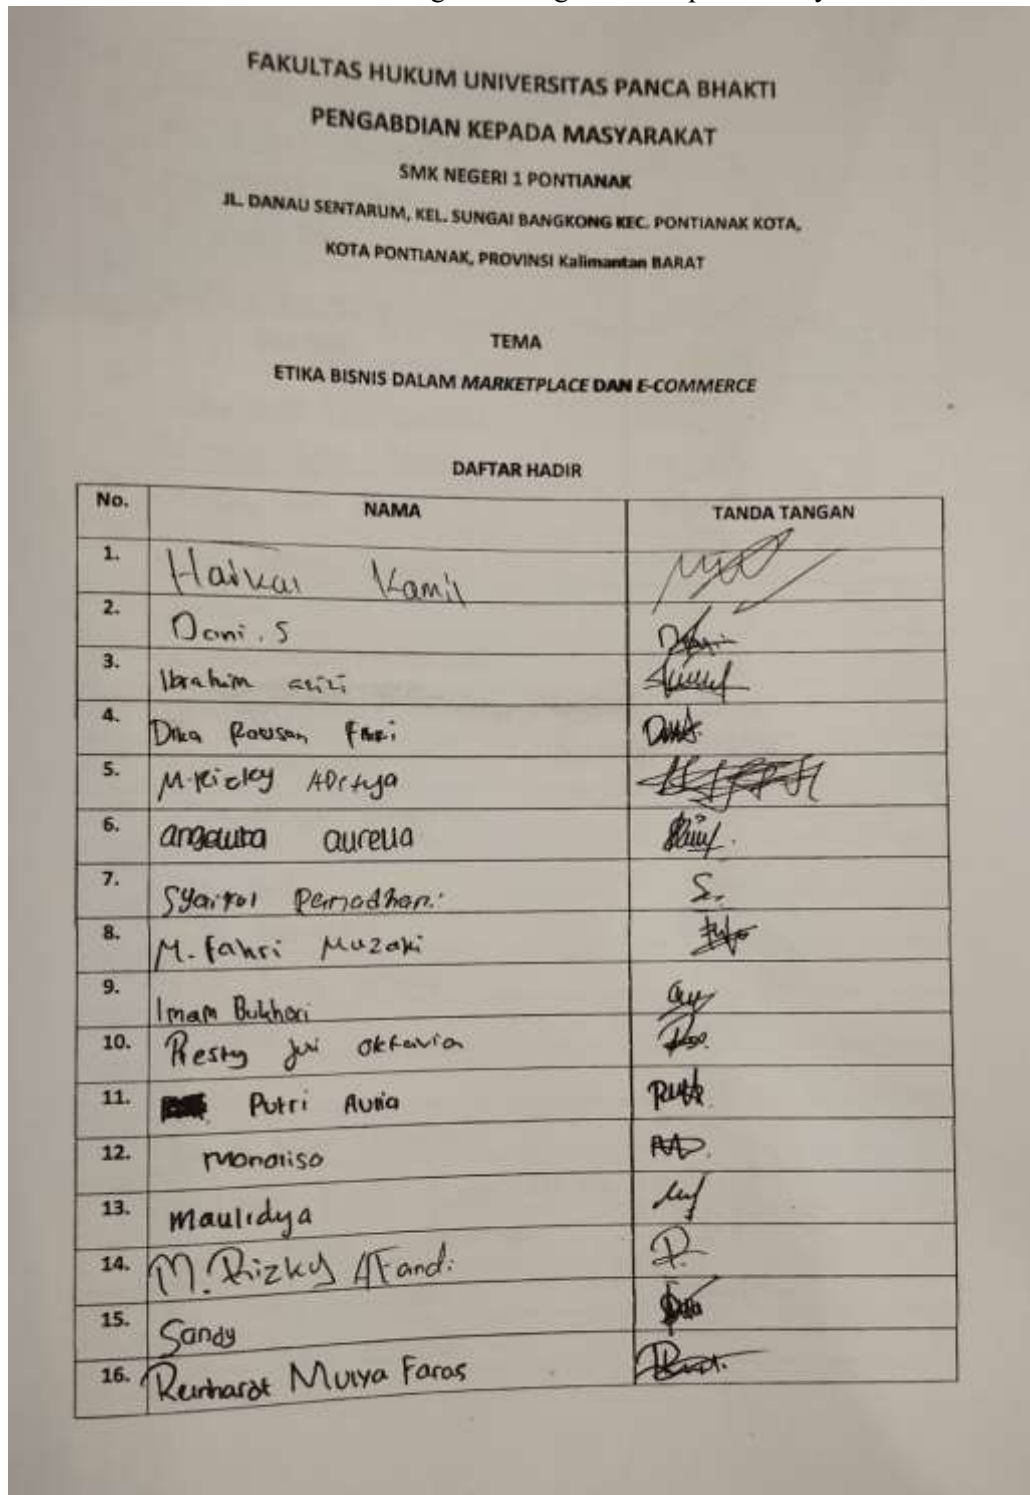 FAKULTAS HUKUM UNIVERSITAS PANCA BHAKTI
PENGABDIAN KEPADA MASYARAKAT
SMK NEGERI 1 PONTIANAK
JL. DANAU SENTARUM, KEL. SUNGAI BANGKONG KEC. PONTIANAK KOTA,
KOTA PONTIANAK, PROVINSI Kalimantan BARAT
TEMA
ETIKA BISNIS DALAM MARKETPLACE DAN E-COMMERCE
DAFTAR HADIR
No. NAMA TANDA TANGAN
1. Haikal Kamil
2. Dani . S
3. Ibrahim azizi
4. Dika
5. M. Rizky ADitya
6. aurelia
7. Ramadhani
8. M. Fahri Muzaki
9. Imam Bukhori
10. Resty Jui oktavia
11. Putri Aulia
12. monalisa
13. Maulidya
14. M. Rizky AFandi
15. Sandy
16. Reinhardt Mulya Faras